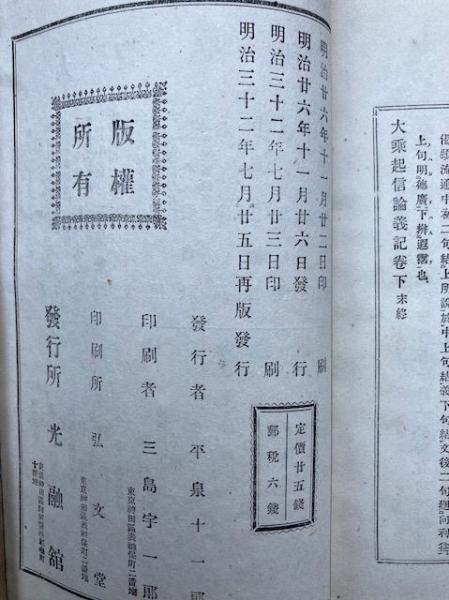 上句明德廣下辨遐霑也
大乘起信論義記卷下 末終
明治廿六年十一月廿二日印刷
明治廿六年十一月廿六日發行
明治三十二年七月廿三日印刷
明治三十二年七月廿五日再版發行
定價廿五錢
郵稅六錢
版權
所有
發行者 平泉十一郎
印刷者 三島宇一郎
東京神田區表神保町二番地
印刷所 弘文堂
東京神田區表神保町二番地
發行所 光融館